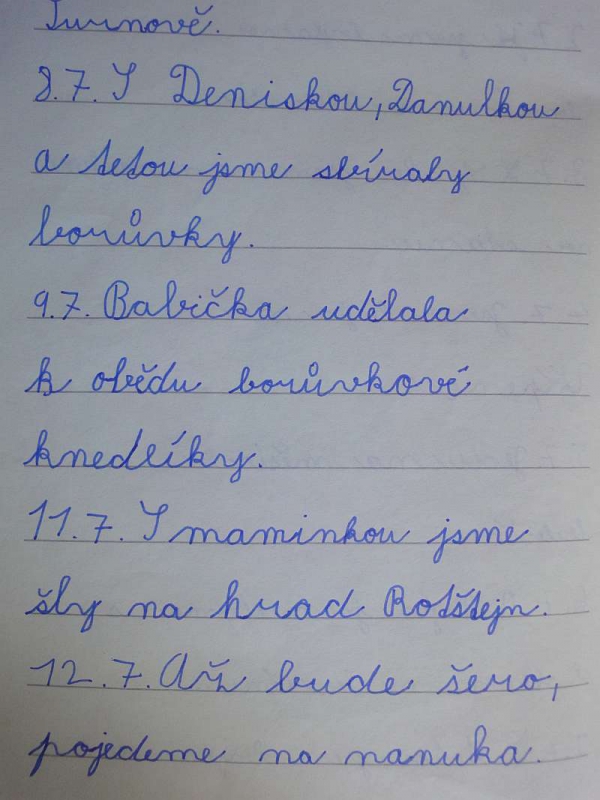 Turnově.
8.7. S Deniskou, Danulkou
a tetou jsme sbíraly
borůvky.
9.7. Babička udělala
k obědu borůvkové
knedlíky.
11.7. S maminkou jsme
šly na hrad Rotštejn.
12.7. Až bude šero,
pojedeme na nanuka.